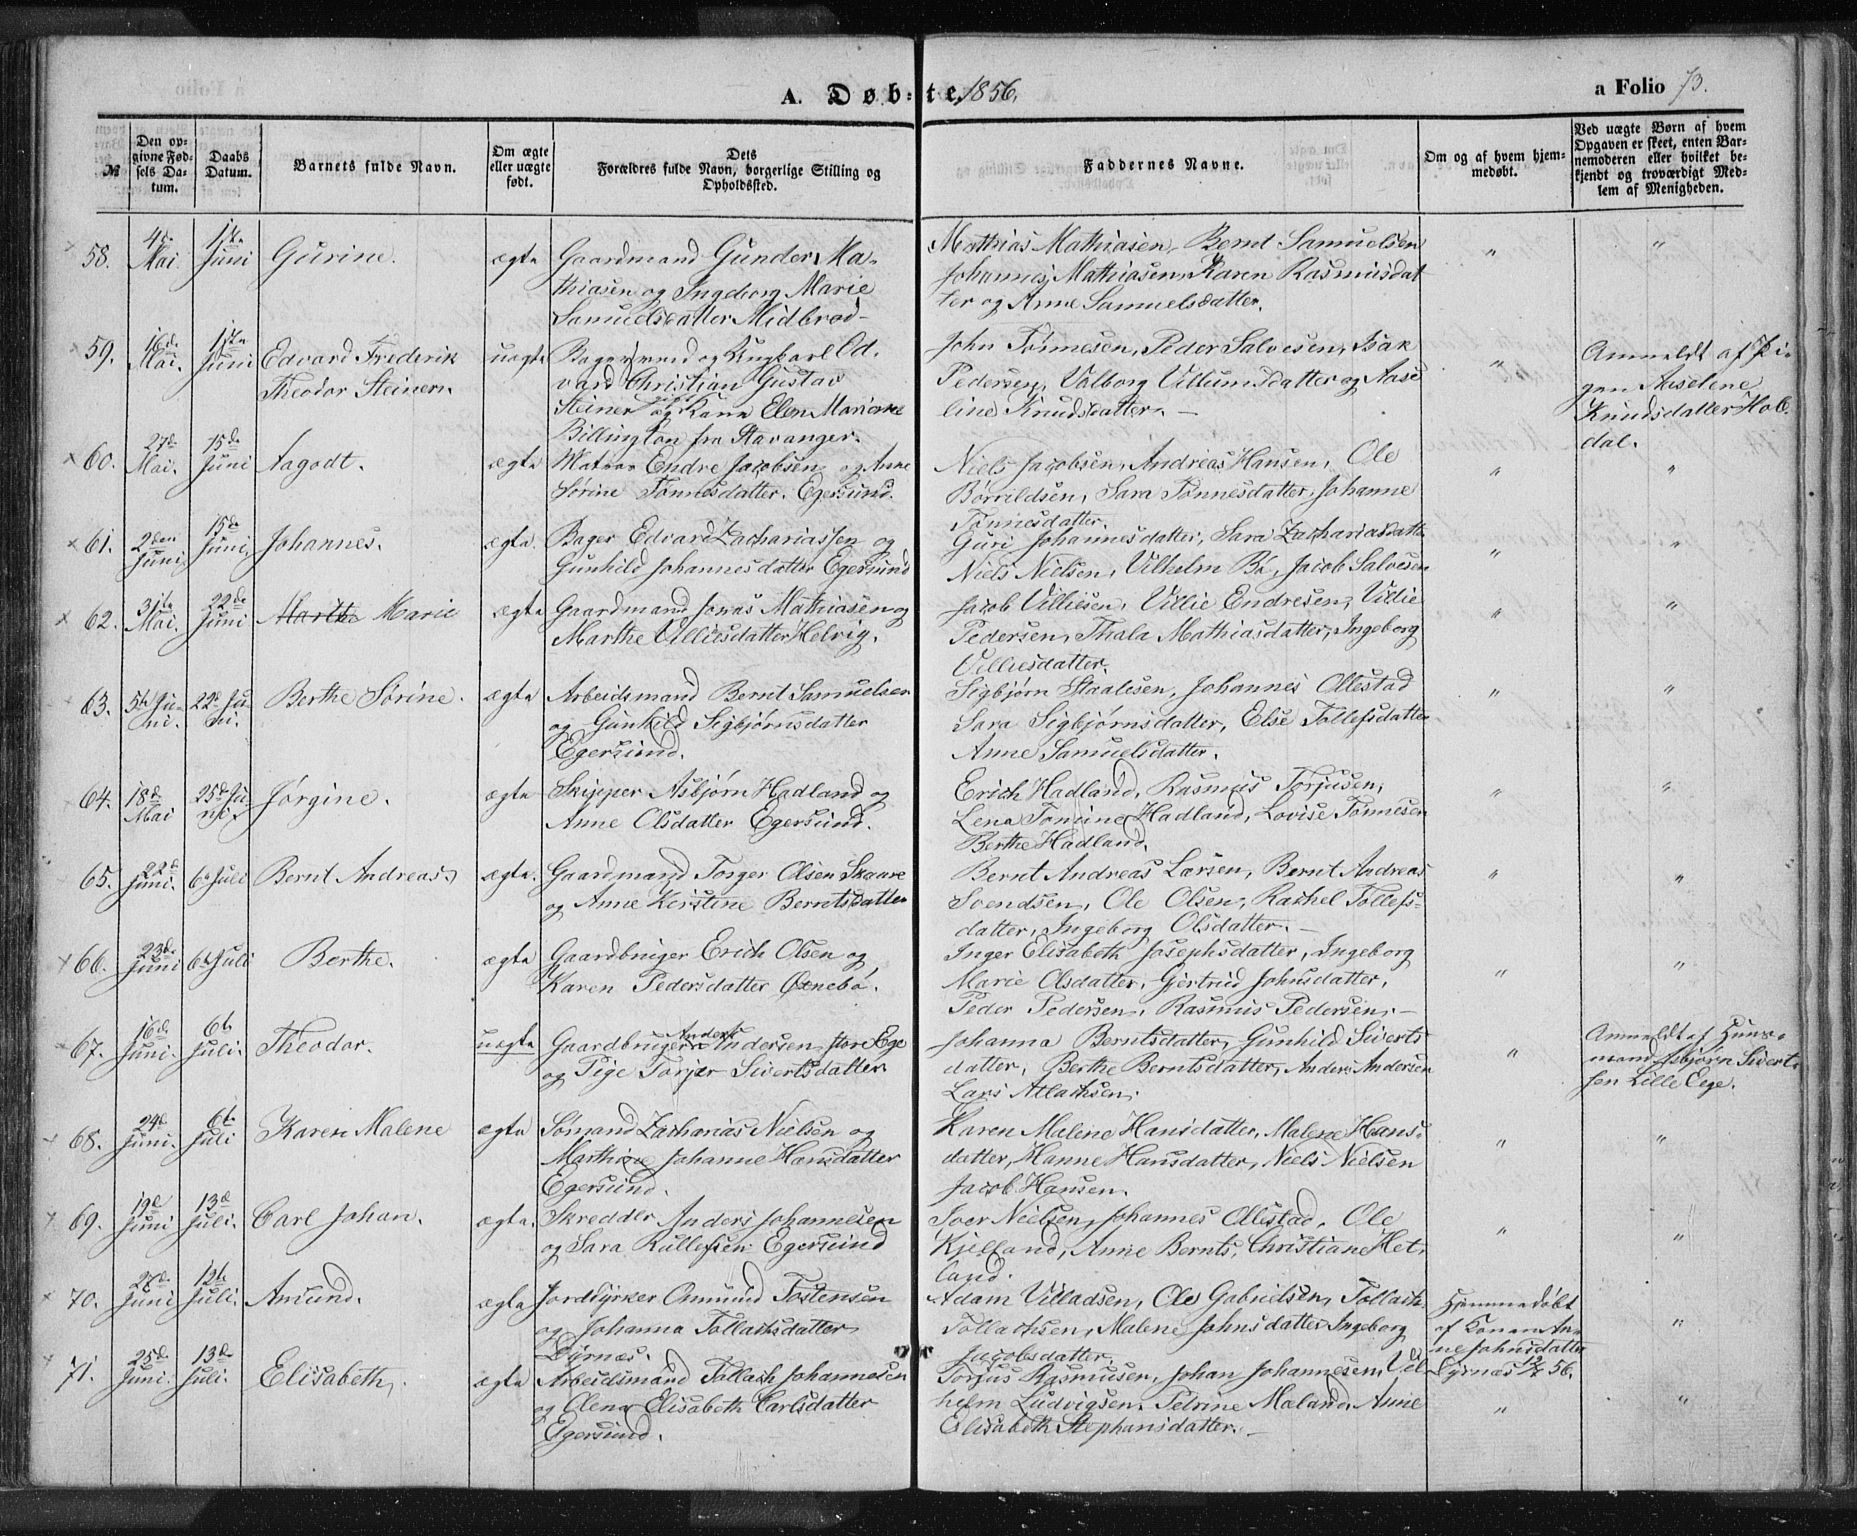 A. Døb=te 1856.
a Folio 73.
№
Den op-
givne Fød-
sels Da-
tum.
Daabs
Datum.
Barnets fulde Navn.
Om ægte
eller uægte
født.
Dets
Forældres fulde Navn, borgerlige Stilling og
Opholdssted.
Faddernes Navne.
Om og af hvem hjem-
medøbt.
Ved uægte Børn af hvem
Opgaven er skeet, enten Bar-
nemoderen eller hvilket be-
kjendt og troværdigt Med-
lem af Menigheden.
58. 4de Mai 1ste Juni Gurine. ægte
Gaardmand Gunder Ma-
thiasen og Ingeborg Marie
Samuelsdatter Midbrød-
Mathias Mathiasen, Bernt Samuelsen
Johannes Mathiasen, Karen Rasmusdat
ter og Anne Samuelsdatter.
" "
59. 16de Mai. 1ste Juni Edvard Frederik
Theodor Steinern. uægte
Bagersvend og Ungkarl Ed-
vard Christian Gustav
Steiner og Kone Elen Mariane
Billington fra Stavanger.
John Tønnesen, Peder Salvesen, Isak
Pedersen, Valborg Villumsdatter og Aase
line Knudsdatter. —
"
Anmeldt af Pi-
gen Aaselene
Knudsdatter Hole
dal.
60. 27de Mai. 15de Juni Aagodt. ægte
Matros Endre Jacobsen og Anne
Sørine Tønnesdatter. Egersund.
Niels Jacobsen, Andreas Hansen, Ole
Børrildsen, Sara Tønnesdatter, Johanne
Tønnesdatter.
" "
61. 2den Juni 15de Juni Johannes. ægte.
Bager Edvard Zachariassen og
Gunhild Johannesdatter Egersund
Guri Johannesdatter, Sara Zachariasdatte
Niels Nielsen, Vilhelm Bø, Jacob Salvesen
" "
62. 31te Mai. 22de Juni Marthe Marie ægte
Gaardmand Jonas Mathiasen og
Marthe Villiesdatter Helvig.
Jacob Villiesen, Villie Endresen, Villie
Pedersen, Thala Mathiasdatter, Ingeborg
Villiesdatter.
" "
63. 5te Ju-
ni. 22de Ju-
ni. Berthe Sørine. ægte
Arbeidsmand Bernt Samuelsen
og Gunhild Sigbjørnsdatter
Egersund.
Sigbjørn Staalesen, Johannes Ollestad
Sara Sigbjørnsdatter, Else Tollefsdatter
Anne Samuelsdatter.
" "
64. 18de Mai 25de Ju-
ni. Jørgine. ægte
Skipper Asbjørn Hadland og
Anne Olsdatter Egersund.
Erich Hadland, Rasmus Torjusen,
Lena Tomine Hadland, Lovise Tønnesen
Berthe Hadland.
" "
65. 22de Juni. 6te Juli Bernt Andreas, ægte.
Gaardmand Torger Olsen Skaare
og Anne Kirstine Berntsdatter
Bernt Andreas Larsen, Bernt Andreas
Svendsen, Ole Olsen, Rachel Tollefs-
datter, Ingeborg Olsdatter. —
" "
66. 23de Juni 6te Juli Berthe. ægte
Gaardbruger Erich Olsen og
Karen Pedersdatter Øxnebø.
Inger Elisabeth Josephsdatter, Ingeborg
Marie Olsdatter, Gjertrud Johnsdatter,
Peder Pedersen, Rasmus Pedersen. —
" "
67. 16de Juni. 6te Juli. Theodor. uægte
Gaardbruger Anders Andersen store Ege
og Pige Torjer Sivertsdatter
Johanna Berntsdatter, Gunhild Siverts
datter, Berthe Berntsdatter, Anders Andersen
Lars Atlachsen.
"
Anmeldt af Huus-
mand Asbjørn Sivert-
sen Lille Eege.
68. 24de Juni. 6te Juli Karen Malene ægte
Sømand Zacharias Nielsen og
Marthine Johanne Hansdatter
Egersund.
Karen Malene Hansdatter, Malene Hans-
datter, Hanne Hansdatter, Niels Nielsen
Jacob Hansen.
" "
69. 19de Juni 13de Juli. Carl Johan. ægte.
Skredder Anders Johannesen
og Sara Rullefsen Egersund
Iver Nielsen, Johannes Ollestad, Ole
Kjelland, Anne Bernts, Christiane Het-
land.
" "
70. 27de Juni 12te Juli. Amund. ægte
Jorddyrker Omund Tostensen
og Johanna Tollachsdatter
Dyrnæs.
Adam Villadsen, Ole Gabrielsen, Tollach
Tollachsen, Malene Johnsdatter, Ingeborg
Jacobsdatter.
Hjemmedøbt
af Konen An-
ne Johnsdatter
Dyrnæs 56.
"
71. 25de Juni. 13de Juli. Elisabeth. ægte
Arbeidsmand Tollach Johannesen
og Olena Elisabeth Carlsdatter
Egersund.
Torjus Rasmusen, Johan Johannesen, Vil-
helm Ludvigsen, Petrine Maland, Anne
Elisabeth Stephansdatter. —
" "